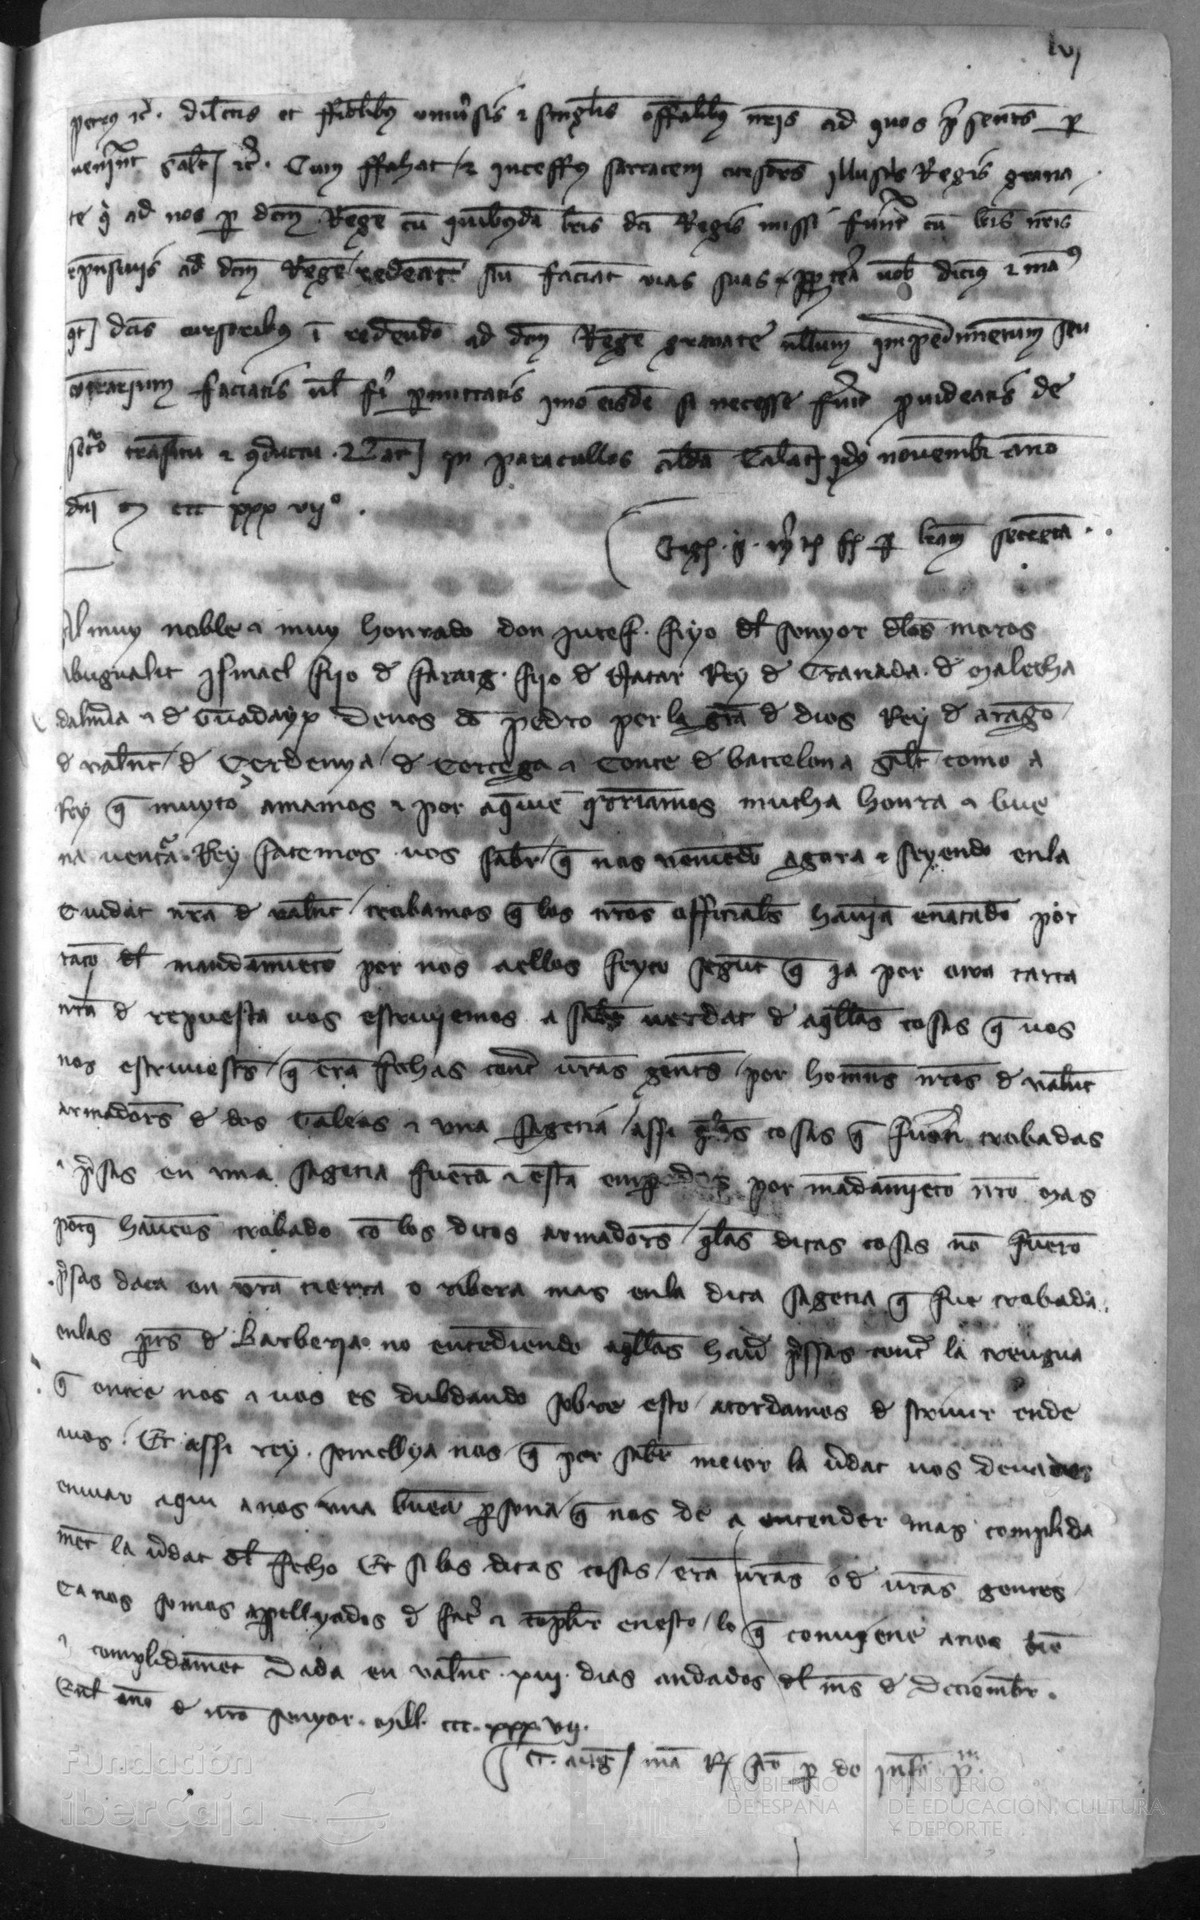 lvj
petrus etc. dilectis et ffidelibus universis & singulis officialibus nostris ad quos presentes per
venerint salutem etc. Cum ffahat & juceffus sarraceni cursores illustris Regis grana
te qui ad nos per dictum Regem cum quibusdam literis dicti Regis missi fuerunt cum literis nostris
responsivis ad dictum Regem redeant seu faciant vias suas propterea vobis dicimus & mandamus
quatenus dictis cursoribus in redeundo ad dictum Regem granate nullum impedimentum seu
contrarium faciatis vel fieri permittatis imo eisdem si necesse fuerit provideatis de
securo transitu & conductu. Datum in paracullos aldea Calat idus novembris anno
dni M CCC xxx vijo.
per literam secretam.
Al muy noble & muy honrado don jucef. fijo del senyor delos moros
Abugualit Ismael fijo de faraig. fijo de Naçar Rey de Granada. de Malecha
dalmeria & de Guadayx Denos don Pedro por la gracia de dios Rey de aragon
de valencia / de Cerdenya / de Corcega & Conte de barcelona salut como a
Rey que muyto amamos & por aquien querriamos mucha honra & bue
na ventura. Rey facemos vos saber que nos veniendo agora & seyendo en la
Ciudat nuestra de valencia / trobamos que los nuestros officiales havian enantado por
raçon del mandamiento por nos aellos feyto segunt que ja por otra carta
nuestra de repuesta vos escriviemos a saber verdat de aquellas cosas que vos
nos escriviestes / que eran fechas contra vuestras gentes / por homnes nuestros de valencia
armadores de dos Galeas & una sagetia / assi que las cosas que fueron trobadas
& presas en una sagetia fueron & estan emparadas por mandamiento nuestro Mas
porque havemos trobado con los ditos armadores / quelas ditas cosas non fueron
presas daca en vuestra tierra o ribera mas enla dita sagetia que fue trobada
enlas partes de Barberia. no entendiendo aquellas haver pressas contra la treugua
que entre nos & vos es dubdando sobre esto / acordamos de scrivir ende
vos. Et assi rey. semellya nos que por saber meior la verdat vos devades
enviar aqui anos una buena persona / que nos de a entender mas complida
ment la verdat del fecho Et si las ditas cosas / eran vuestras o de vuestras gentes
Ca nos somos apellyados de facer & complir en esto / lo que convigene anos bien
& complidament Dada en valencia. xiij. dias andados del mes de Deciembre.
Enel anno de nuestro senyor. Mill. CCC. xxx. vij.